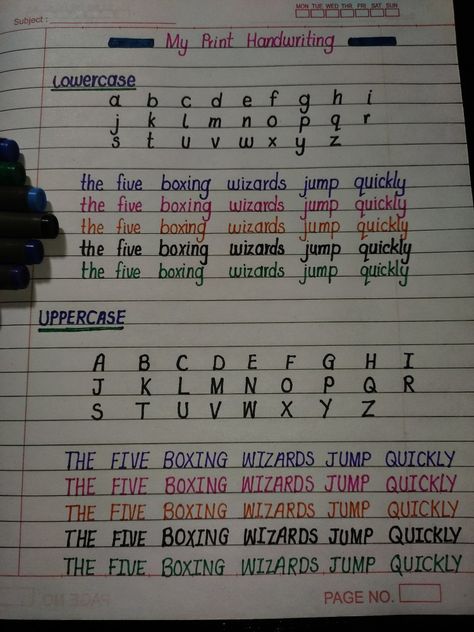 MON TUE WED THR FRI SAT SUN
Subject :
My Print Handwriting
Lowercase
a b c d e f g h i
j k l m n o p q r
s t u v w x y z
the five boxing wizards jump quickly
the five boxing wizards jump quickly
the five boxing wizards jump quickly
the five boxing wizards jump quickly
the five boxing wizards jump quickly
UPPERCASE
A B C D E F G H I
J K L M N O P Q R
S T U V W X Y Z
THE FIVE BOXING WIZARDS JUMP QUICKLY
THE FIVE BOXING WIZARDS JUMP QUICKLY
THE FIVE BOXING WIZARDS JUMP QUICKLY
THE FIVE BOXING WIZARDS JUMP QUICKLY
THE FIVE BOXING WIZARDS JUMP QUICKLY
PAGE NO.